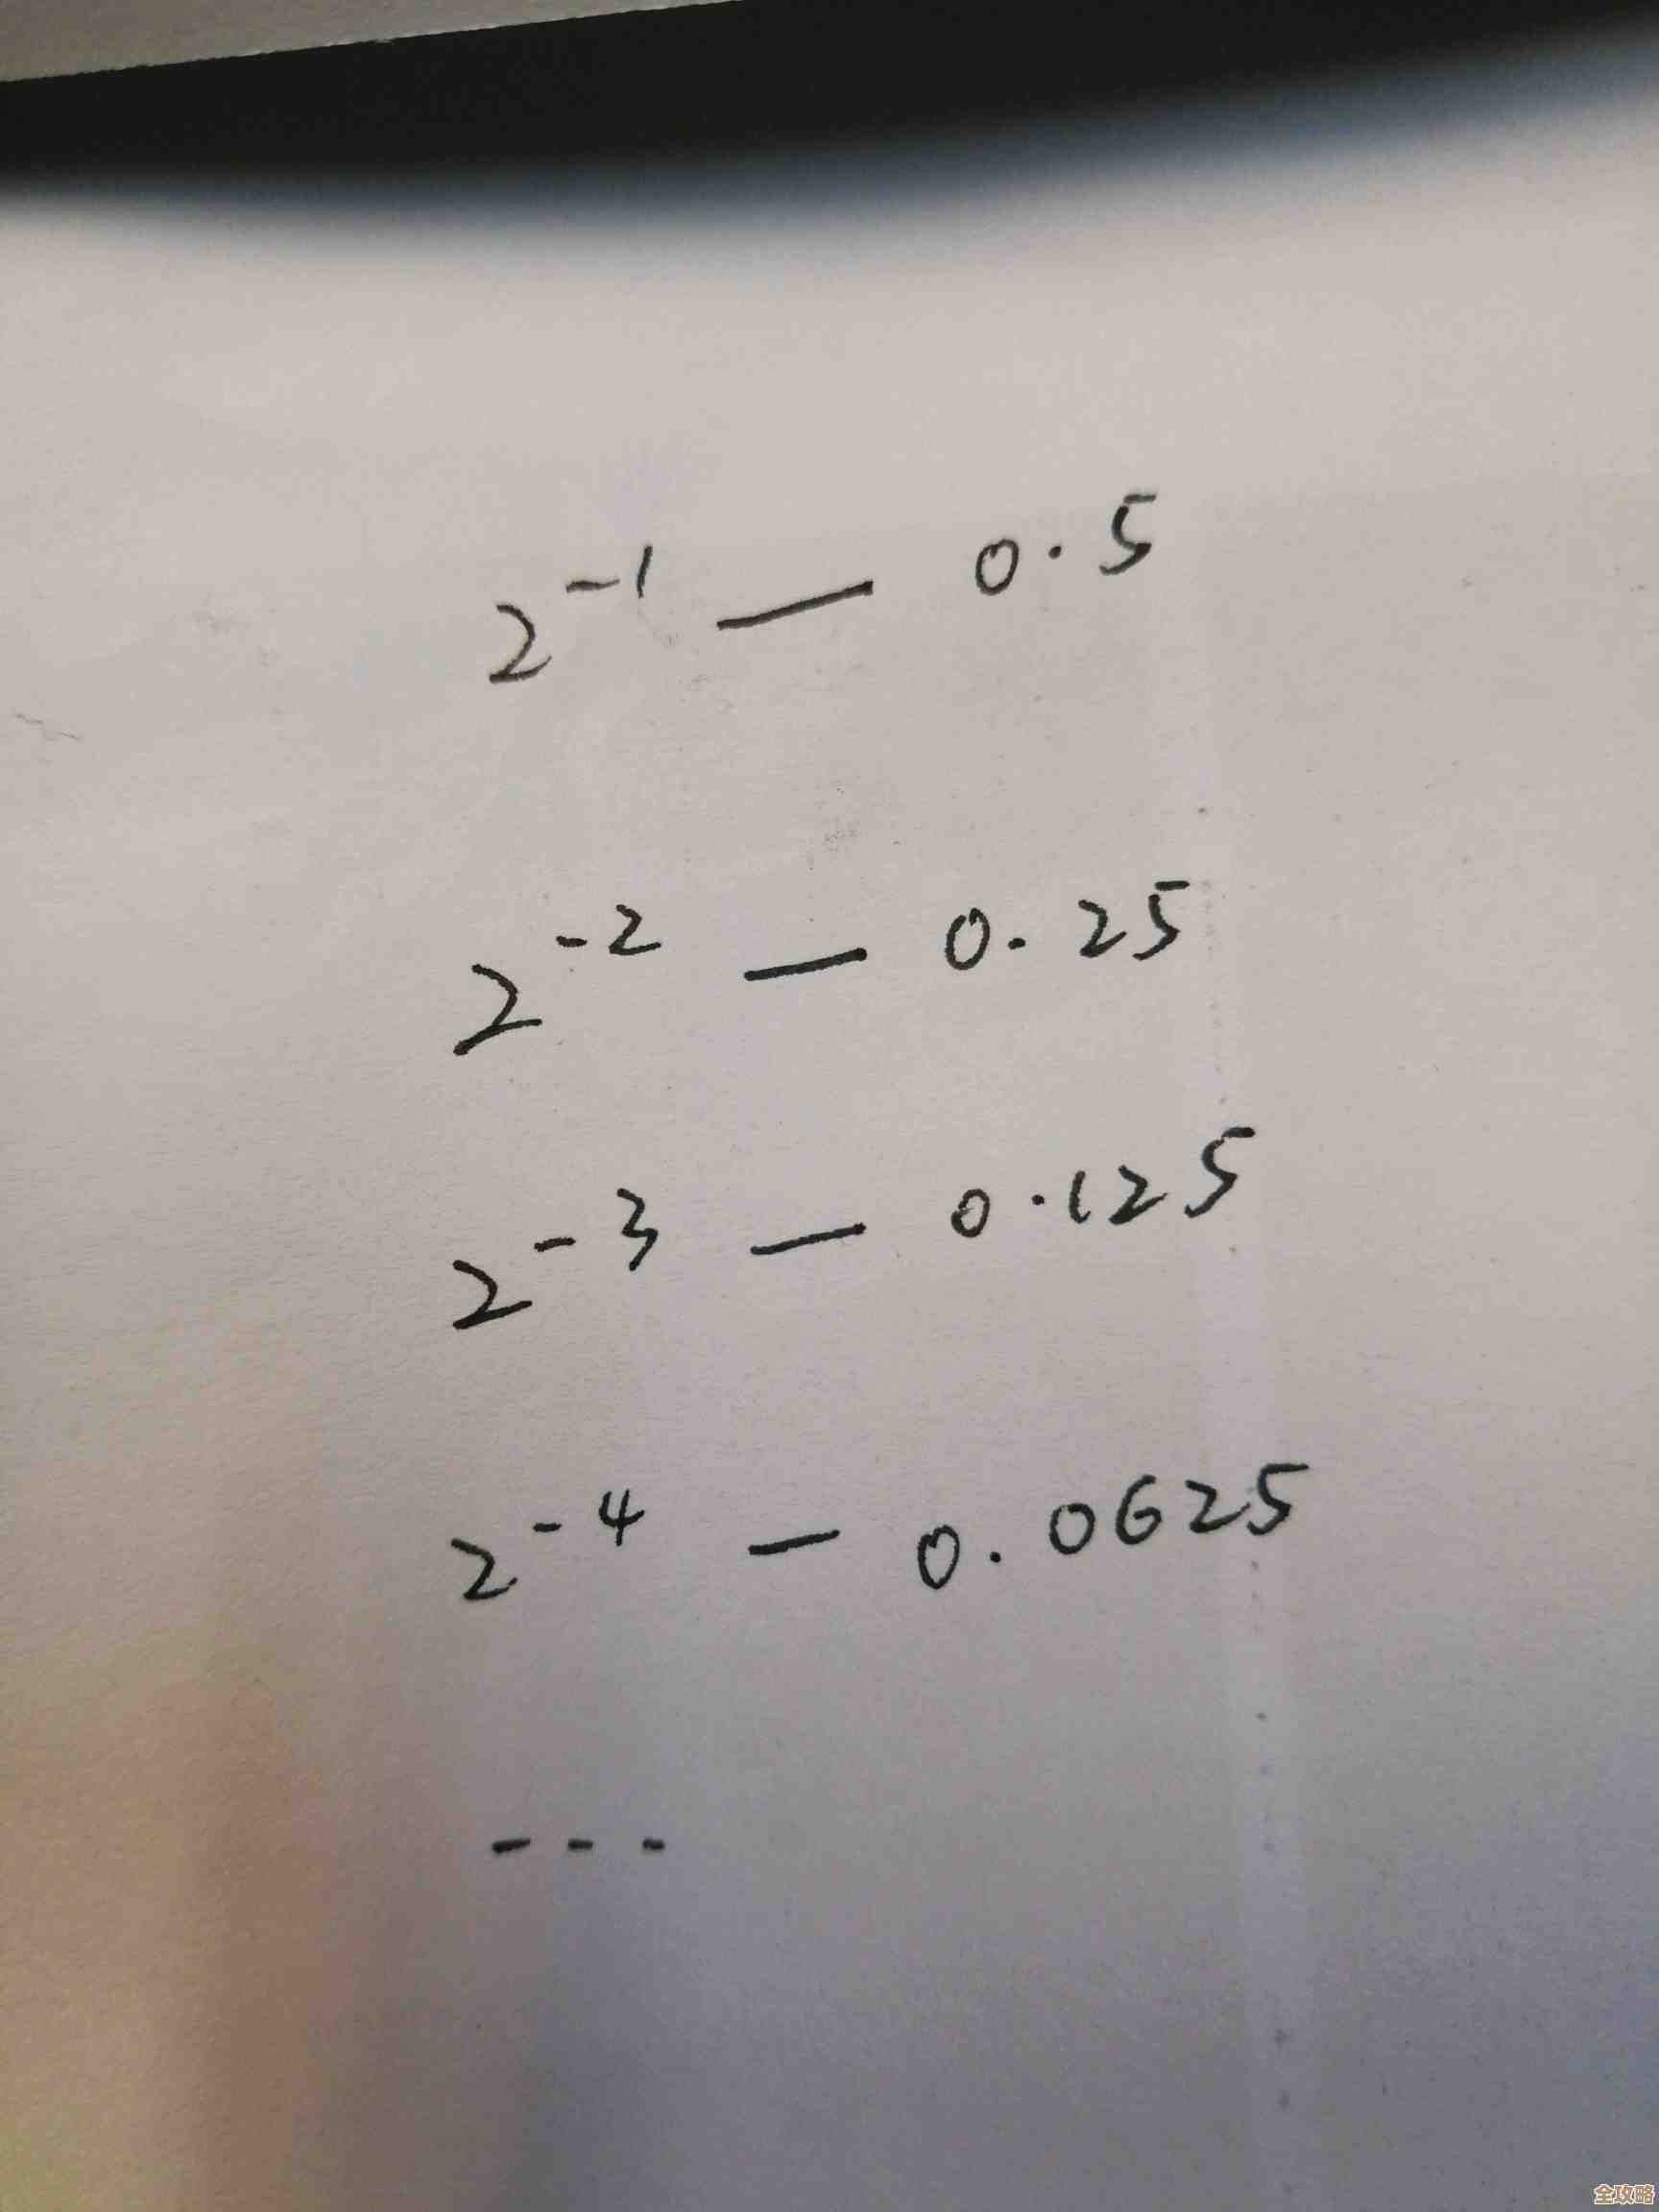 2⁻¹ — 0.5
2⁻² — 0.25
2⁻³ — 0.125
2⁻⁴ — 0.0625
---
全攻略